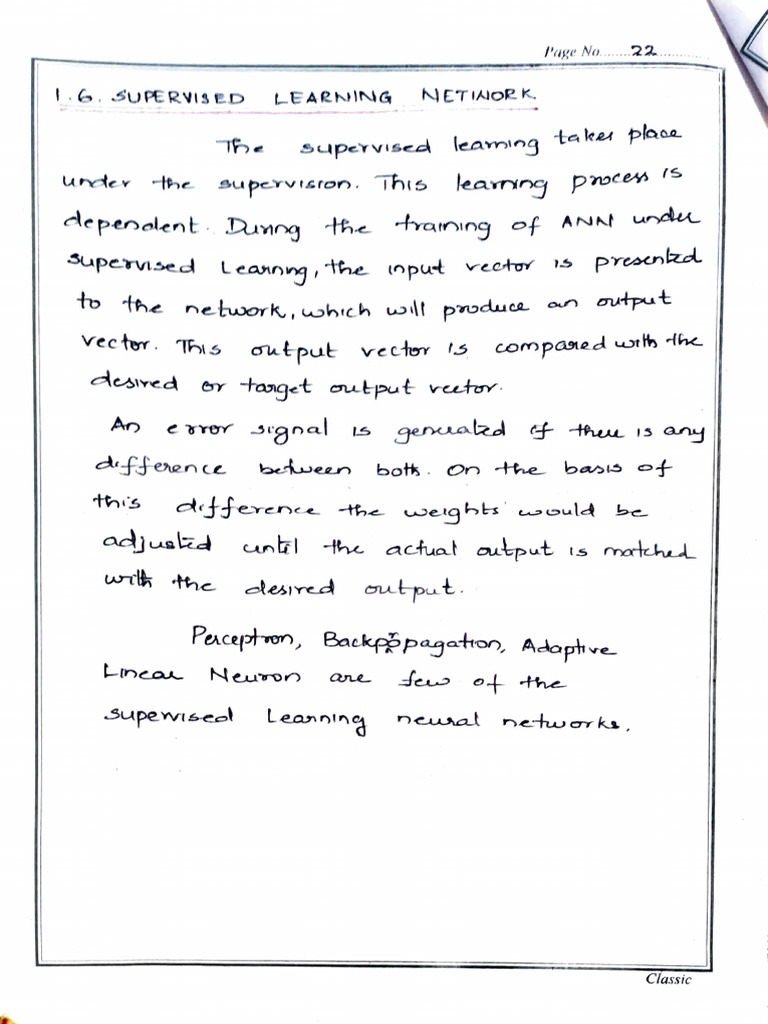 Page No........22..............
1.6. SUPERVISED LEARNING NETWORK.
The supervised learning takes place
under the supervision. This learning process is
dependent. During the training of ANN under
supervised Learning, the input vector is presented
to the network, which will produce an output
vector. This output vector is compared with the
desired or target output vector.
An error signal is generated if there is any
difference between both. On the basis of
this difference the weights would be
adjusted until the actual output is matched
with the desired output.
Perceptron, Backpropagation, Adaptive
Linear Neuron are few of the
supervised Learning neural networks.
Classic